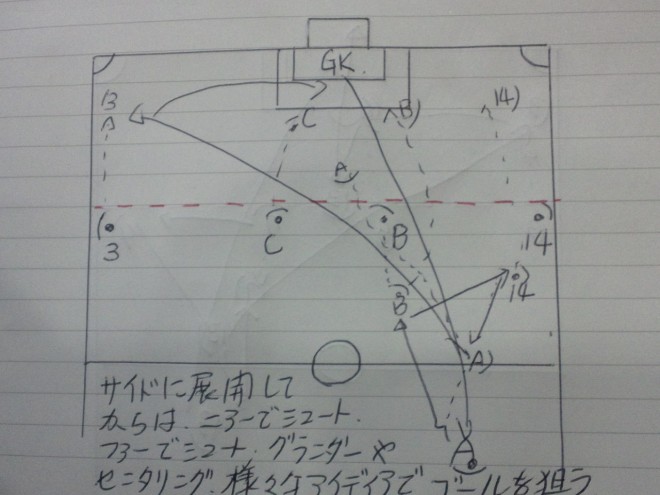 GK.
B
A
C
B)
14)
A
3
C
B
14
B
14
A)
A
サイドに展開して
からは、ニアーでシュート、
ファーでシュート、グランダーや
センタリング、様々なアイディアでゴールを狙う